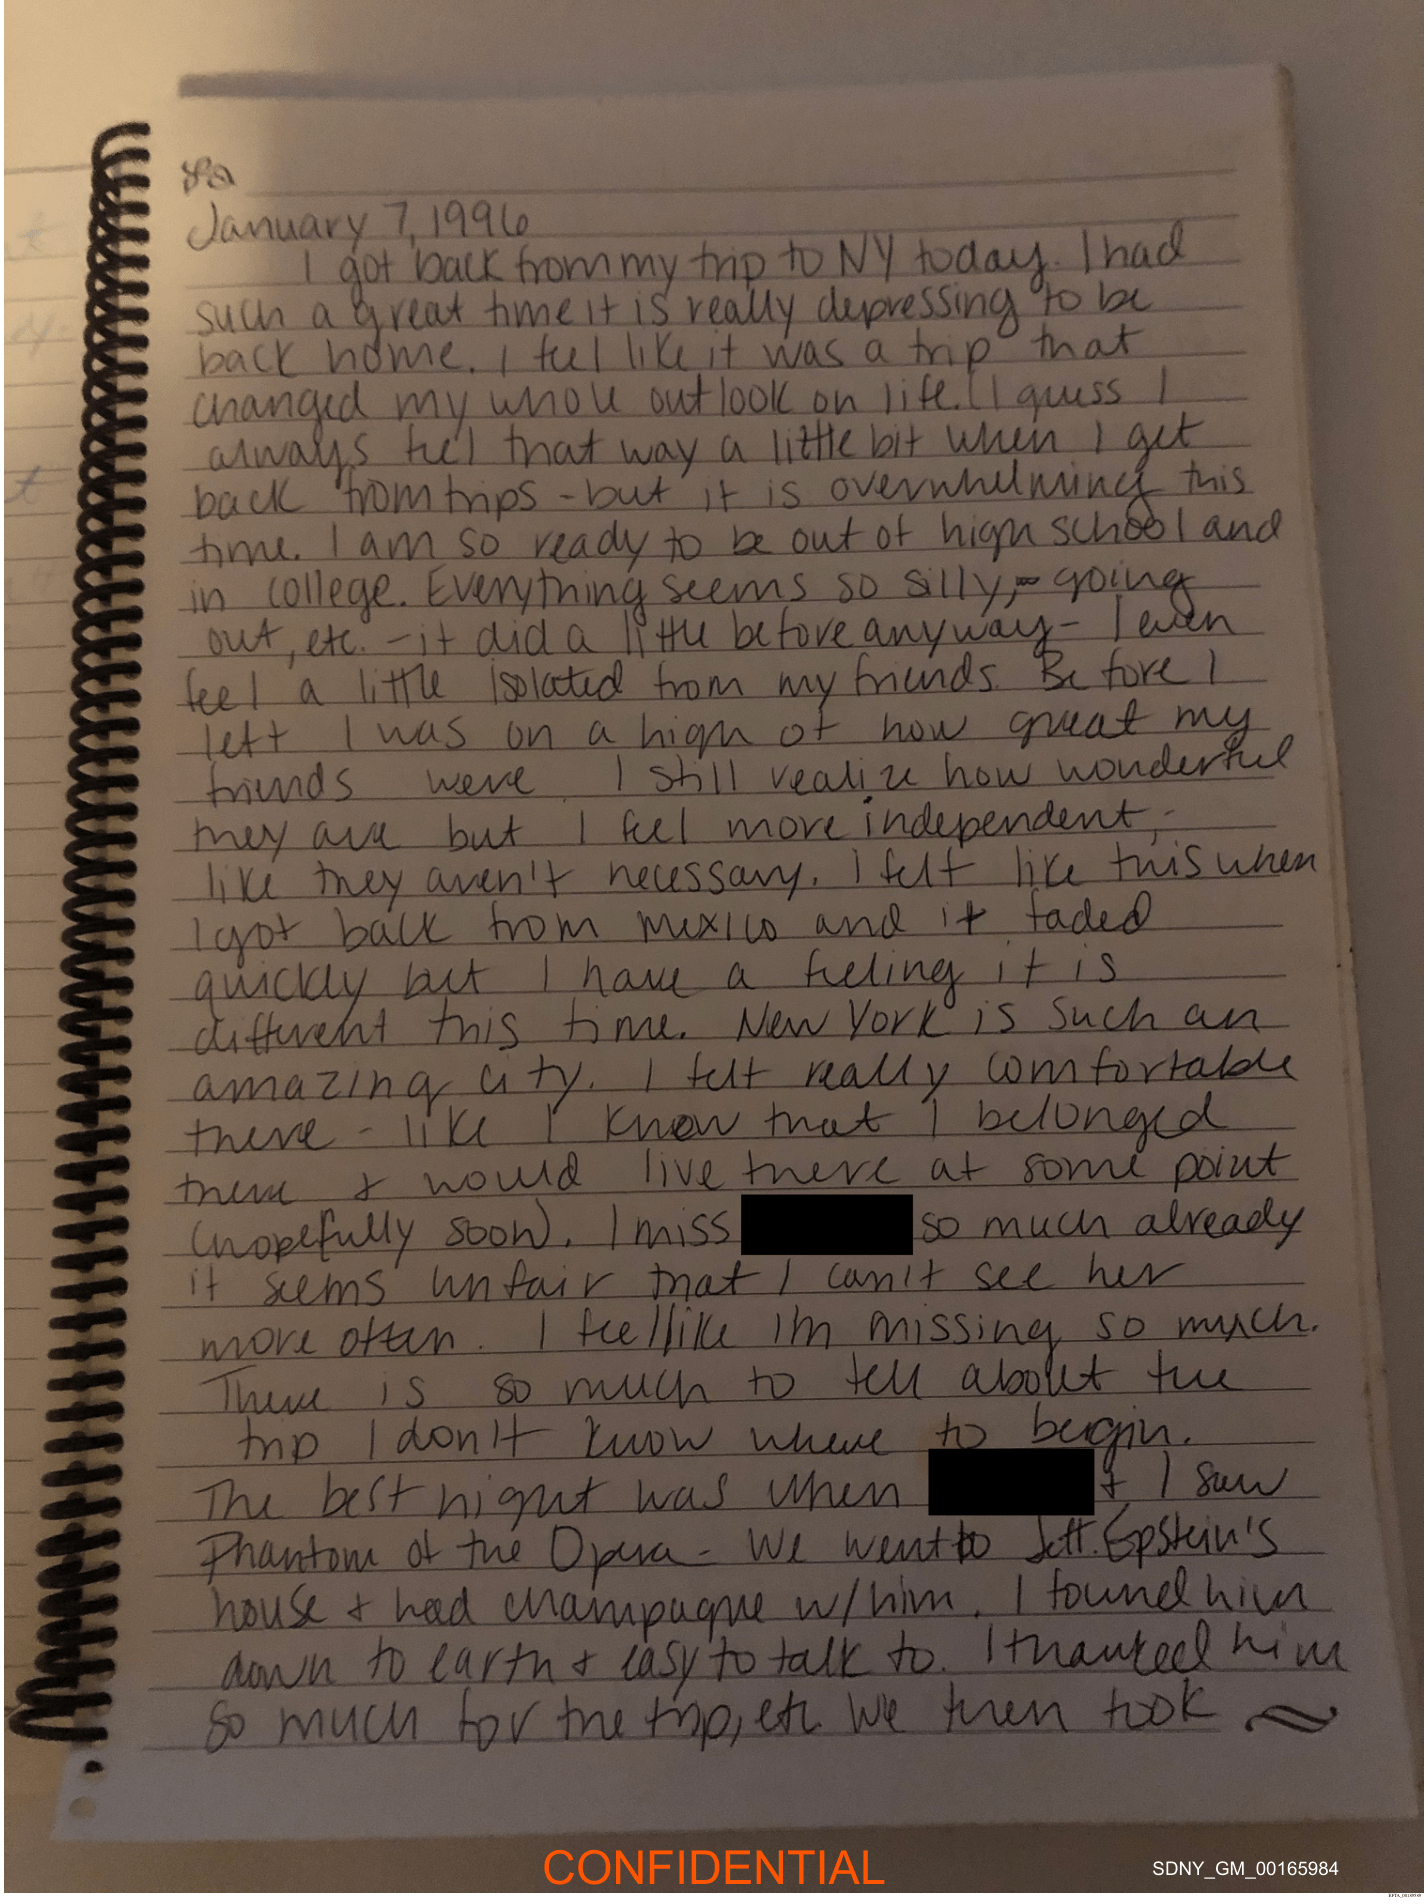 January 7, 1996
I got back from my trip to NY today. I had
such a great time it is really depressing to be
back home. I feel like it was a trip that
changed my whole outlook on life. (I guess I
always feel that way a little bit when I get
back from trips - but it is overwhelming this
time. I am so ready to be out of high school and
in college. Everything seems so silly, - going
out, etc. - it did a little before anyway - I even
feel a little isolated from my friends. Before I
left I was on a high of how great my
friends were. I still realize how wonderful
they are but I feel more independent, -
like they aren't necessary. I felt like this when
I got back from Mexico and it faded
quickly but I have a feeling it is
different this time. New York is such an
amazing city. I felt really comfortable
there - like I know that I belonged
there & would live there at some point
(hopefully soon). I miss so much already
it seems unfair that I can't see her
more often. I feel like I'm missing so much.
There is so much to tell about the
trip I don't know where to bergin.
The best night was when & I saw
Phantom of the Opera - We went to Jeff. Epstein's
house & had champagne w/ him. I found him
down to earth & easy to talk to. I thanked him
so much for the trip, etc. We then took
CONFIDENTIAL
SDNY_GM_00165984